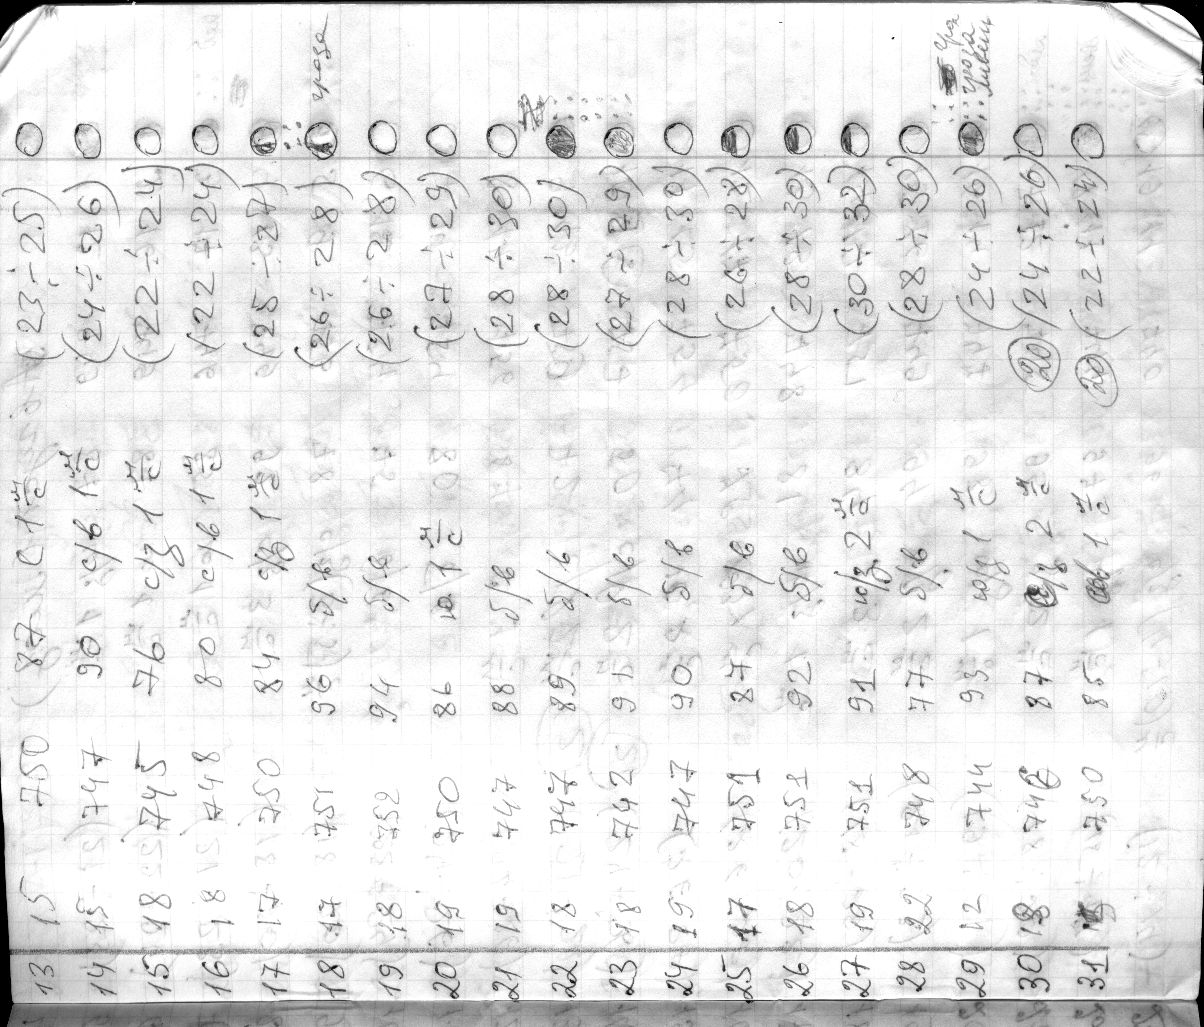 13 15 750 87 с 1 м/с (23÷25)
14 15 747 90 с/в 1 м/с (24÷26)
15 18 745 76 с/з 1 м/с (22÷24)
16 18 748 80 с/в 1 м/с (22÷24)
17 17 750 84 с/в 1 м/с (25÷27)
18 17 751 96 б/в (26÷28) гроза
19 18 752 94 б/в (26÷28)
20 19 750 86 ю 1 м/с (27÷29)
21 19 747 88 б/в (28÷30)
22 18 747 89 б/в (28÷30)
23 18 742 91 б/в (27÷29)
24 19 747 90 б/в (28÷30)
25 17 751 87 б/в (26÷28)
26 18 751 92 б/в (28÷30)
27 19 751 91 ю/з 2 м/с (30÷32)
28 22 748 77 б/в (28÷30)
29 12 744 93 ю/з 1 м/с (24÷26) гроза ливень
30 18 746 87 с/з 2 м/с (20) (24÷26)
31 750 85 св 1 м/с (20) (22÷24)